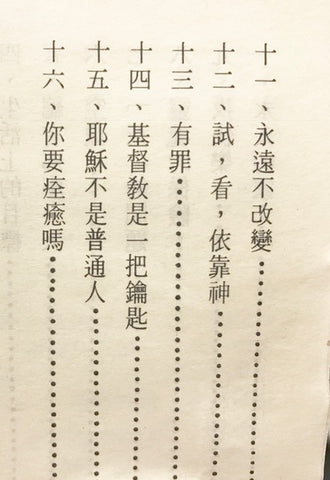 十一、永遠不改變………………
十二、試，看，依靠神………………
十三、有罪………………
十四、基督教是一把鑰匙………………
十五、耶穌不是普通人………………
十六、你要痊癒嗎………………